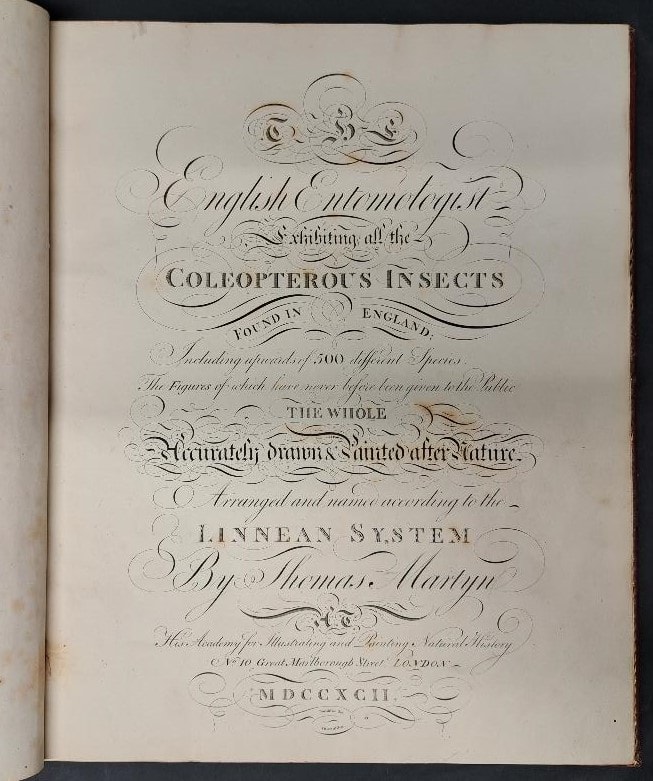 THE
English Entomologist
Exhibiting all the
COLEOPTEROUS INSECTS
FOUND IN ENGLAND.
Including upwards of 500 different Species.
The Figures of which have never before been given to the Public
THE WHOLE
Accurately drawn & Painted after Nature.
Arranged and named according to the
LINNEAN SYSTEM
By Thomas Martyn
AT
His Academy for Illustrating and Painting Natural History
No. 10 Great Marlborough Street LONDON
MDCCXCII.